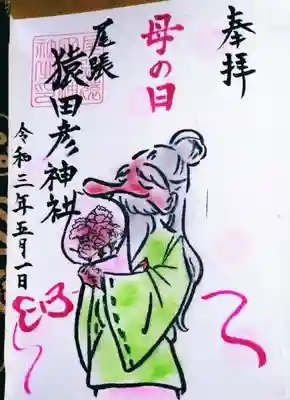 奉拝
母の日
尾張
猿田彦神社
令和三年五月一日